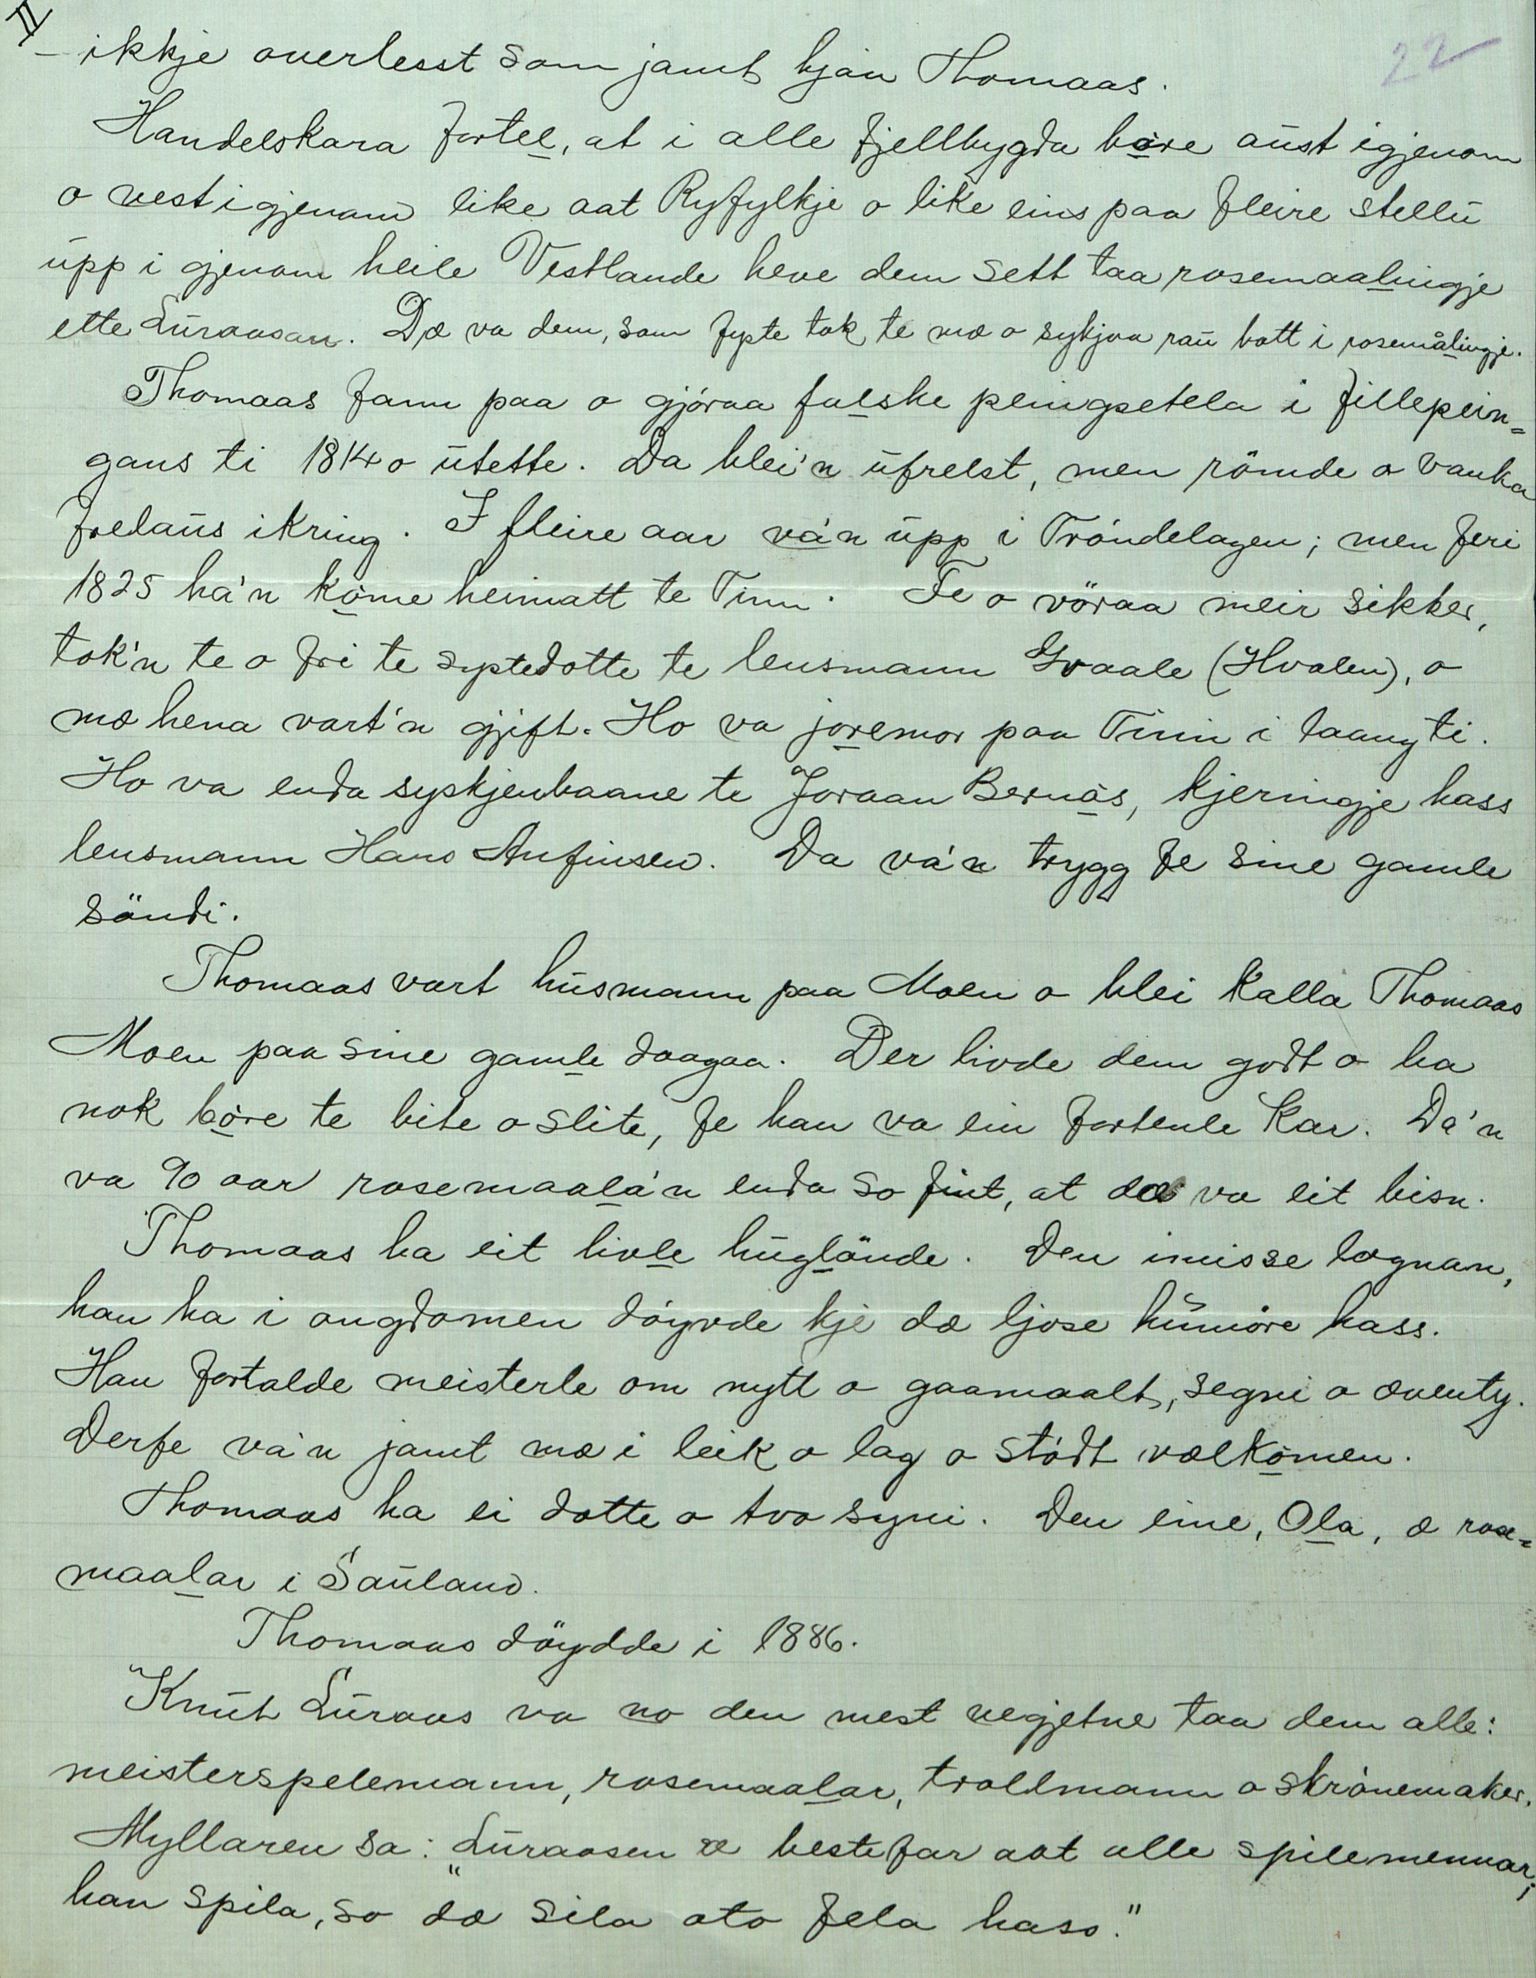 II
22
– ikkje overlesst som jamt hjaa Thomaas.
Handelskara fortel, at i alle fjellbygda båre aust igjenom
o vest igjenom like aat Ryfylkje o like eins paa fleire stellu
upp i gjenom heile Vestlande heve dem sett taa rosemaalingje
ette Luraasan. Dæ va dem, som fyste tok te mæ o sykjaa rau bott i rosemålingje.
Thomaas fann paa o gjöraa falske peingsetela i fillepein=
gans ti 1814 o utette. Da blei'n ufrelst, men römde o vanka
fredaus ikring. I fleire aar va'n upp i Tröndelagen; men feri
1825 ha'n kome heimatt te Tinn. Fe o vöraa meir sikker,
tok'n te o fri te systedotte te lensmann Gvaale (Hvalen), o
mæ hena vart'n gjift. Ho va joremor paa Tinn i laang ti.
Ho va enda syskjenbaane te Joraan Bernås, kjeringje hass
lensmann Hans Anfinsen. Da va'n trygg fe sine gamle
söndi.
Thomaas vart husmann paa Moen o blei kalla Thomaas
Moen paa sine gamle daagaa. Der livde dem godt o ha
nok båre te bite o slite, fe han va ein fortenle kar. Da'n
va 90 aar rosemaala'n enda so fint, at dæ va eit bisn.
Thomaas ha eit livle huglönde. Den imisse lagnan,
han ha i ongdomen döyvde kje dæ ljose humöre hass.
Han fortalde meisterle om nytt o gaamaalt, segni o æventy.
Derfe va'n jamt mæ i leik o lag o stödt vælkomen.
Thomaas ha ei dotte o tvo syni. Den eine, Ola, æ rose=
maalar i Sauland.
Thomaas döydde i 1886.
Knut Luraas va no den mest vegjetne taa dem alle:
meisterspelemann, rosemaalar, trollmann o skrönemaker.
Myllaren sa: "Luraasen æ bestefar aat alle spilemennar;
han spila, so dæ sila ato fela hass."